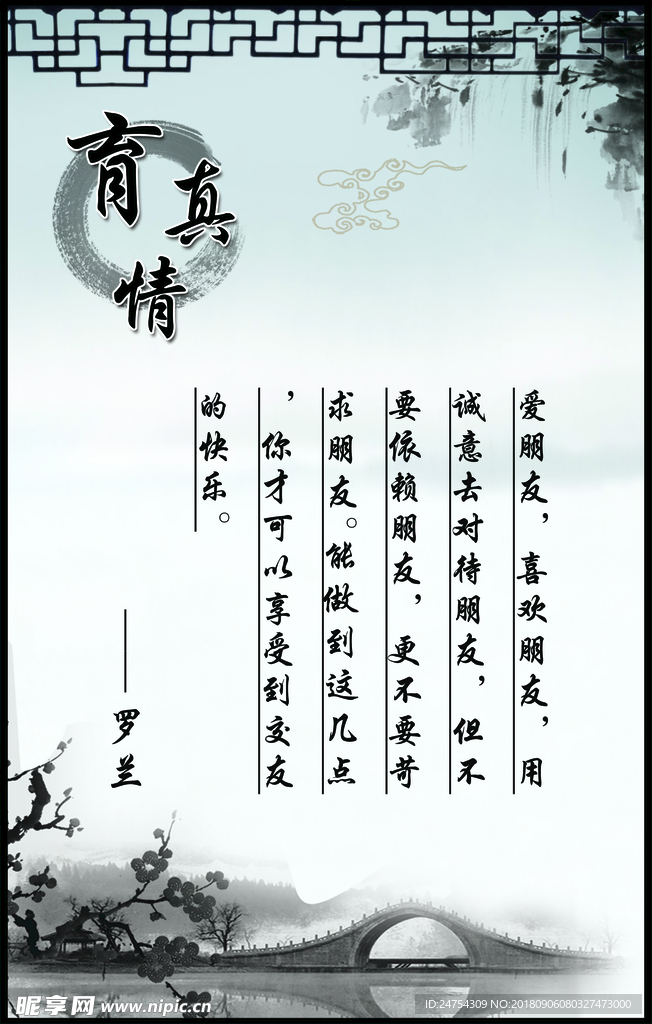 育真情
爱朋友，喜欢朋友，用
诚意去对待朋友，但不
要依赖朋友，更不要苛
求朋友。能做到这几点
，你才可以享受到交友
的快乐。
——罗兰
昵享网 www.nipic.cn
ID:24754309 NO:20180906080327473000